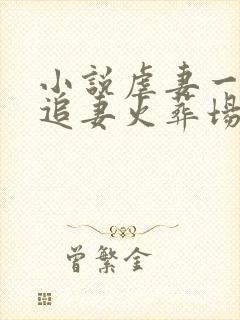 小說虐妻一
追妻火葬場
曾繁金